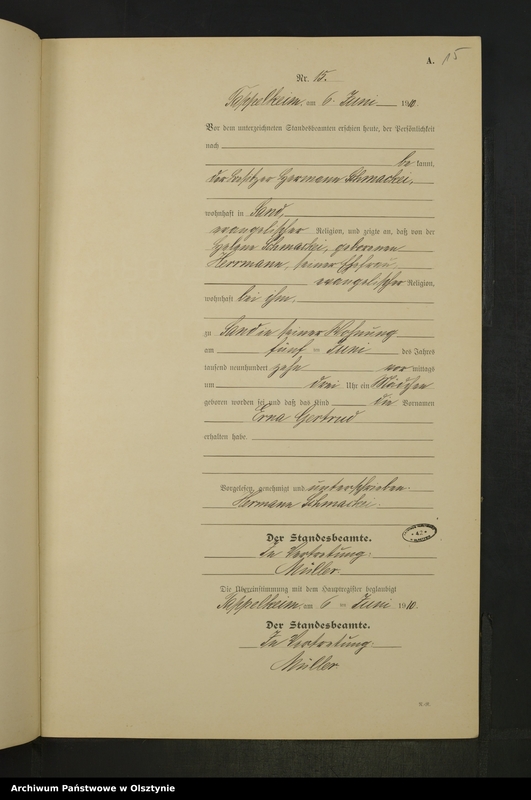 A. 15
Nr. 15.
Keppelheim, am 6. Juni 1910.
Vor dem unterzeichneten Standesbeamten erschien heute, der Persönlichkeit
nach
be kannt,
der Besitzer Hermann Schmackei,
wohnhaft in Sand,
evangelischer Religion, und zeigte an, daß von der
Helene Schmackei, geborenen
Herrmann, seiner Ehefrau,
evangelischer Religion,
wohnhaft bei ihm,
zu Sand in seiner Wohnung
am fünf ten Juni des Jahres
tausend neunhundert zehn vor mittags
um drei Uhr ein Mädchen
geboren worden sei und daß das Kind die Vornamen
Erna Gertrud
erhalten habe.
Vorgelesen, genehmigt und unterschrieben.
Hermann Schmackei.
Der Standesbeamte.
In Vertretung.
Müller.
Die Übereinstimmung mit dem Hauptregister beglaubigt
am 6 ten Juni 1910.
Der Standesbeamte.
In Vertretung.
Müller.
Archiwum Państwowe w Olsztynie